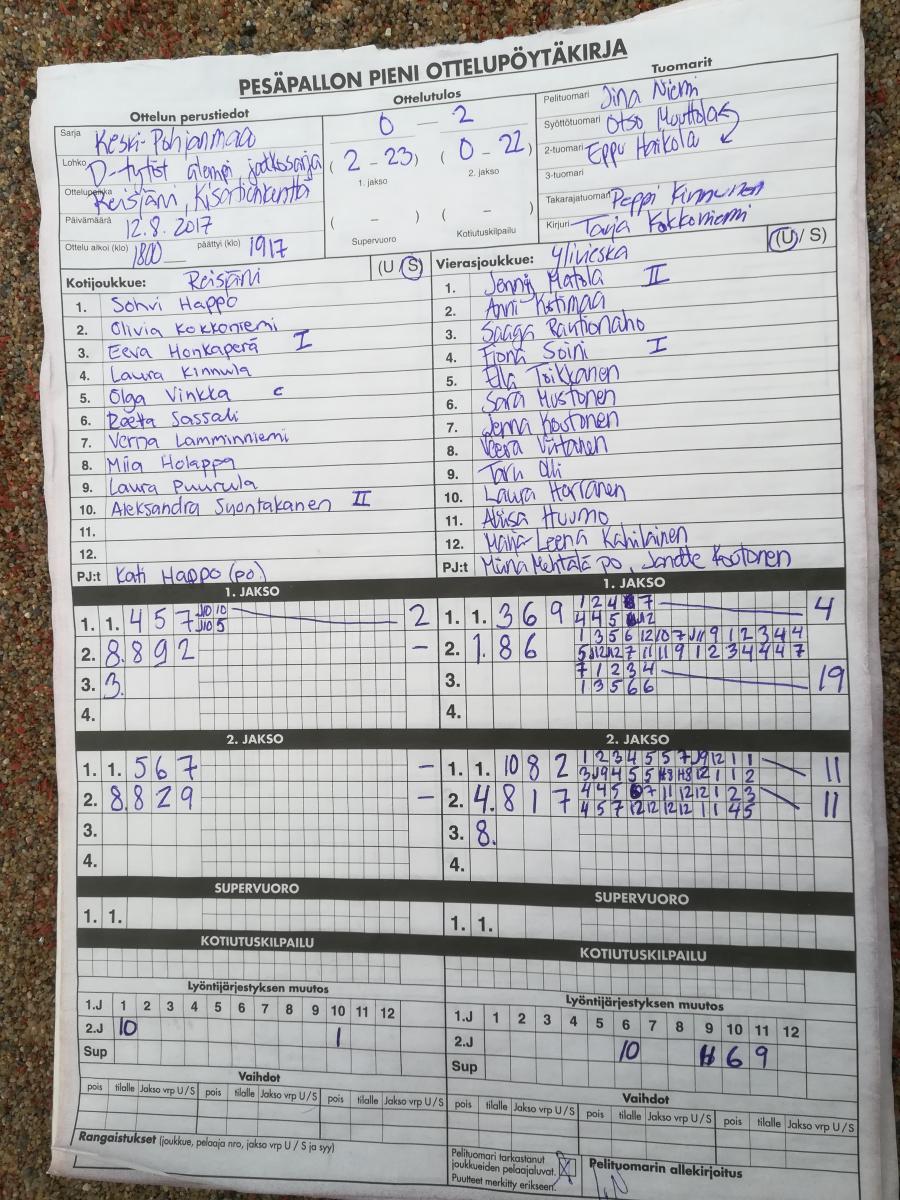 PESÄPALLON PIENI OTTELUPÖYTÄKIRJA
Ottelun perustiedot
Sarja Keski-Pohjanmaa
Lohko D-tytöt alempi jatkosarja
Ottelupaikka Reisjärvi, Kisationkenttä
Päivämäärä 12.8.2017
Ottelu alkoi (klo) 1800 päättyi (klo) 1917
Ottelutulos
0 - 2
(2 - 23) (0 - 22)
1. jakso 2. jakso
( - ) ( - )
Supervuoro Kotiutuskilpailu
Tuomarit
Pelituomari Jina Niemi
Syöttötuomari Otso Muuttola
2-tuomari Eppu Harkola
3-tuomari
Takarajatuomari Peppi Kinnunen
Kirjuri Tarja Kokkoniemi
Kotijoukkue: Reisjärvi (U / S)
1. Sohvi Happo
2. Olivia Kokkoniemi
3. Eeva Honkaperä I
4. Laura Kinnula
5. Olga Vinkka c
6. Reeta Sassali
7. Verna Lamminniemi
8. Miia Holappa
9. Laura Puurula
10. Aleksandra Syöntakanen II
11.
12.
PJ:t Kati Happo (po)
Vierasjoukkue: Ylivieska (U / S)
1. Jenny Matola II
2. Anni Kotimaa
3. Saaga Rautionaho
4. Fiona Soini I
5. Ella Toikkanen
6. Sara Mustonen
7. Jenna Koutonen
8. Veera Virtanen
9. Taru Olli
10. Laura Harranen
11. Aliisa Huumo
12. Maija-Leena Kahilainen
PJ:t Miina Mehtälä po, Janette Koutonen
1. JAKSO
1. 1. 4 5 7 J10 10 2
J10 5
2. 8. 8 9 2 -
3. 3.
4.
1. JAKSO
1. 1. 3 6 9 1 2 4 7 4
4 4 5 12
2. 1. 8 6 1 3 5 6 12 10 7 J11 9 1 2 3 4 4
5 J12 12 7 11 11 9 1 2 3 4 4 4 7
3. 7 1 2 3 4 19
1 3 5 6 6
4.
2. JAKSO
1. 1. 5 6 7 -
2. 8. 8 2 9 -
3.
4.
2. JAKSO
1. 1. 10 8 2 1 2 3 4 5 5 7 J9 12 1 1 11
3 J9 4 5 5 H8 H8 12 1 1 2
2. 4. 8 1 7 4 4 5 6 7 11 12 12 1 2 3 11
4 5 7 12 12 12 12 1 1 4 5
3. 8.
4.
SUPERVUORO
1. 1.
SUPERVUORO
1. 1.
KOTIUTUSKILPAILU
KOTIUTUSKILPAILU
Lyöntijärjestyksen muutos
1.J 1 2 3 4 5 6 7 8 9 10 11 12
2.J 10 1
Sup
Lyöntijärjestyksen muutos
1.J 1 2 3 4 5 6 7 8 9 10 11 12
2.J 10 11 6 9
Sup
Vaihdot
pois tilalle Jakso vrp U/S pois tilalle Jakso vrp U/S pois tilalle Jakso vrp U/S
Vaihdot
pois tilalle Jakso vrp U/S pois tilalle Jakso vrp U/S pois tilalle Jakso vrp U/S
Rangaistukset (joukkue, pelaaja nro, jakso vrp U / S ja syy)
Pelituomari tarkastanut
joukkueiden pelaajaluvat. X
Puutteet merkitty erikseen.
Pelituomarin allekirjoitus